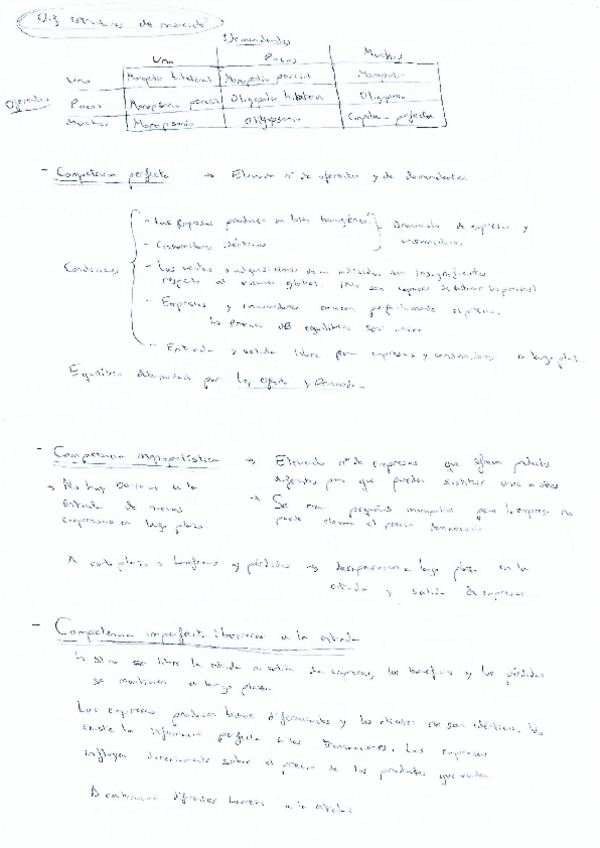 Estructuras de mercado
Demandantes
Uno Pocos Muchos
Oferentes
Uno Monopolio bilateral Monopolio parcial Monopolio
Pocos Monopsonio parcial Oligopolio bilateral Oligopolio
Muchos Monopsonio Oligopsonio perfecta
- Competencia perfecta → Elevado nº de oferentes y de demandantes
- Las empresas producen bienes homogéneos
- Consumidores idénticos
de empresas y
consumidores.
Condiciones
- Las ventas o adquisiciones de un individuo son insignificantes
respecto al volumen global. (No son capaces de
- Empresas y consumidores conocen perfectamente
los precios de equilibrio
- Entrada y salida libre para empresas y consumidores a largo plazo.
Equilibrio determinado por la oferta y demanda.
- Competencia monopolística → Elevado nº de empresas que ofrecen productos
diferentes pero que pueden sustituir unos a otros
→ No hay barreras a la
entrada de nuevas
empresas en largo plazo.
→ Se crean pequeños monopolios pero la empresa no
puede elevar el precio demasiado
A corto plazo beneficios y pérdidas → desaparecen a largo plazo con la
entrada y salida de empresas
- Competencia imperfecta barreras a la entrada
↳ Al no ser libre la entrada ni salida de empresas, los beneficios y las pérdidas
se mantienen a largo plazo.
Las empresas producen bienes diferenciados y los clientes no son idénticos. No
existe la información perfecta a las transacciones. Las empresas
influyen directamente sobre el precio de los productos que venden.
A continuación diferentes barreras a la entrada: